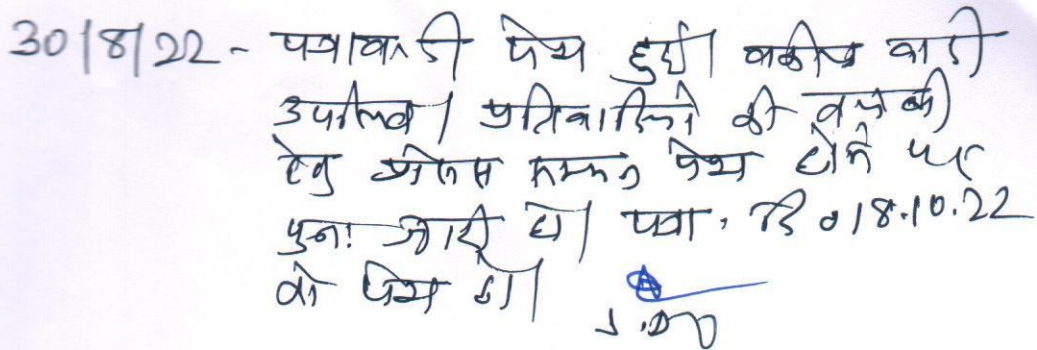 30/8/22 - पत्रावली पेश हुई। वकील वादी
उपस्थित। प्रतिवादीगणों की तलबी
हेतु सम्मन पेश होने पर
पुनः जारी हो। पत्रा. दि० 18.10.22
को पेश हो।